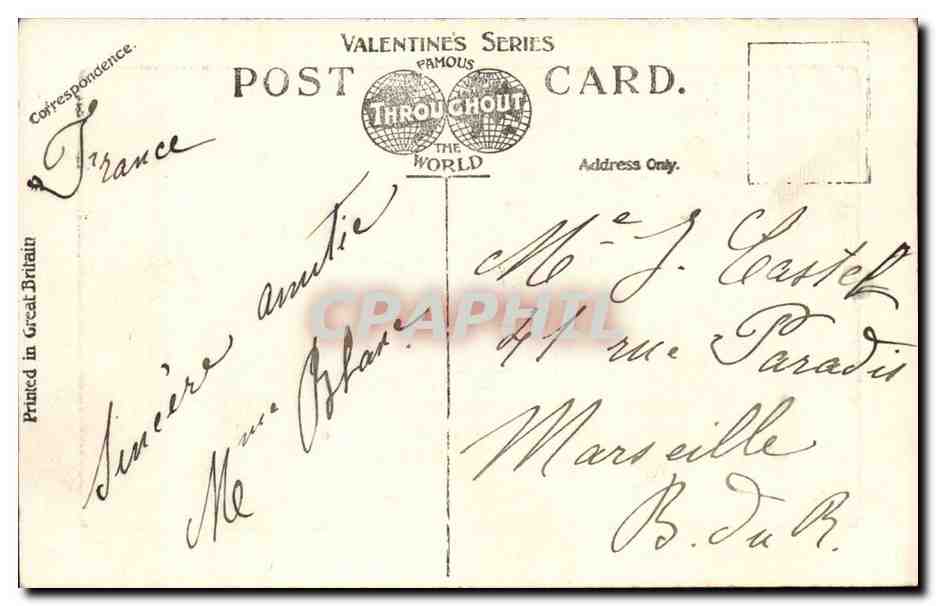 VALENTINE'S SERIES
FAMOUS
POST CARD.
THROUGHOUT
THE
WORLD
Correspondence.
Address Only.
Printed in Great Britain
France
Sincère amitié
Mme Blanc
CPAPHIL
Me J. Castel
41 rue Paradis
Marseille
B. du R.